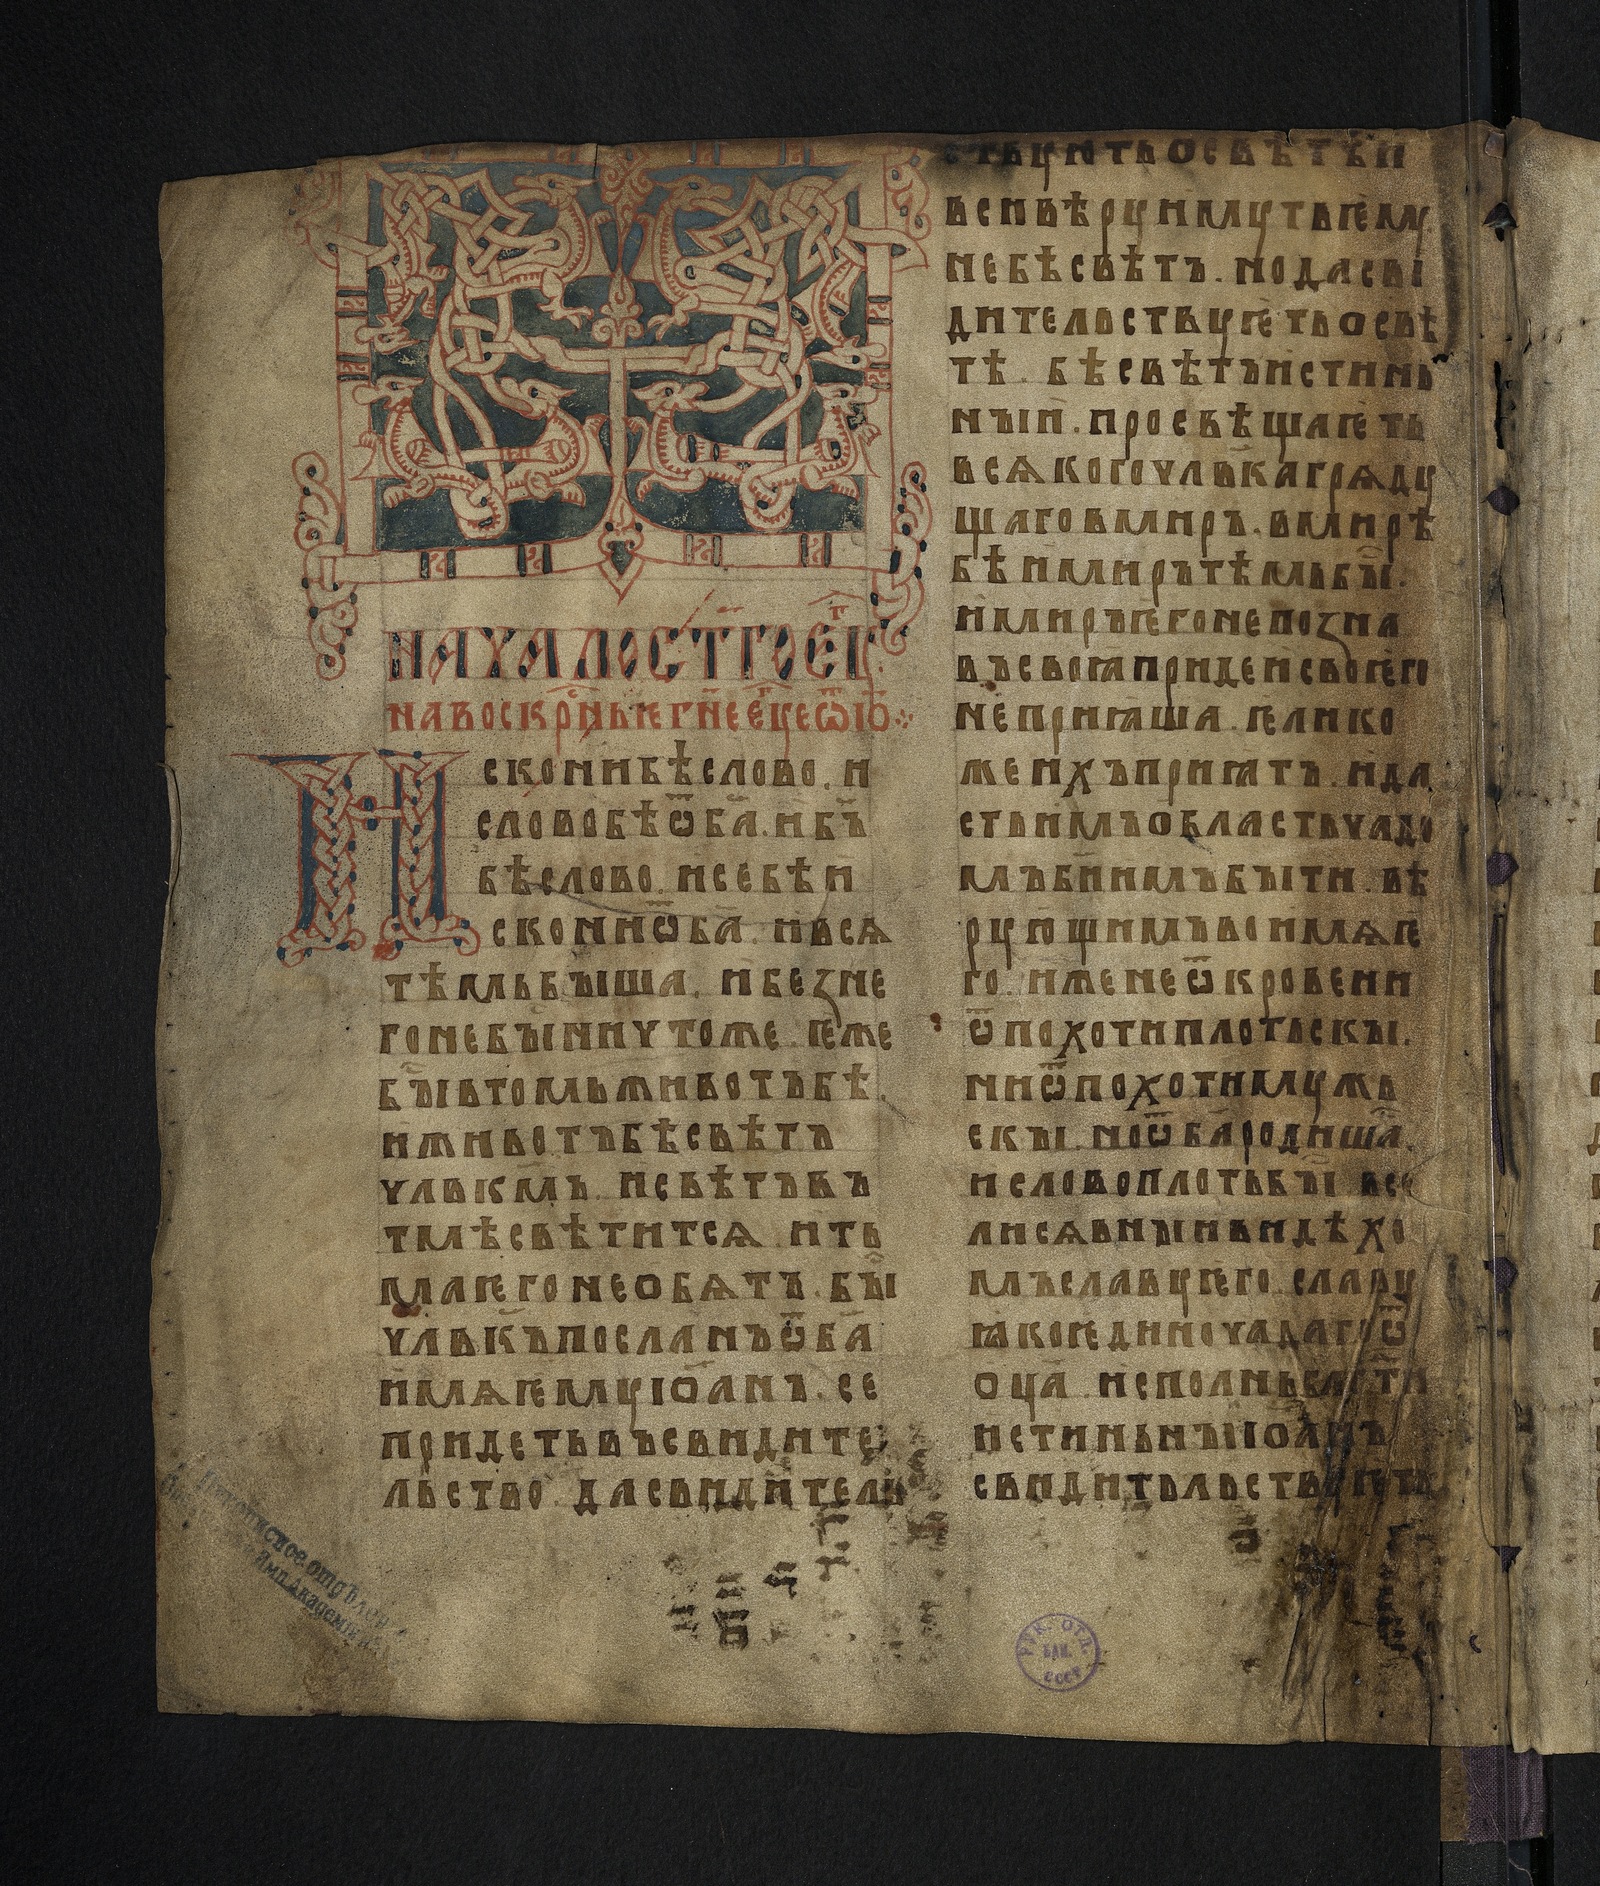 НАЧАЛО СТ҃ГО ЕѴГ҃.
НАВОСКР҃НЬѤ Г҃НЕ Е҃Ѵ҃Г҃Е Ѿ ІО҃
ИСКОНИ БѢ СЛОВО. И
СЛОВО БѢ Ѿ Б҃А. И Б҃Ъ
БѢ СЛОВО. И СЕ БѢ И
СКОНИ Ѿ Б҃А. И ВСѦ
ТѢМЬ БЪІША. И БЕЗ НЕ
ГО НЕ БЪІ НИЧТОЖЕ. ѤЖЕ
БЪІ В ТОМЬ ЖИВОТЪ БѢ.
И ЖИВОТЪ БѢ СВѢТЪ
ЧЛ҃ВКМ҃Ъ. И СВѢТЪ ВЪ
ТМѢ СВѢТИТСѦ. И ТЬ
МА ѤГО НЕ ОБѦТЪ. БЪІ
ЧЛ҃ВКЪ ПОСЛАНЪ Ѿ Б҃А
ИМѦ ѤМУ ІОАНЪ. СЕ
ПРИДЕТЬ ВЪ СВИДИТЕ
ЛЬСТВО. ДА СВИДИТЕЛЬ
СТВУЮТЬ О СВѢТѢ И
ВСИ ВѢРУ ИМУТЬ ѤМУ.
НЕ БѢ СВѢТЪ. НО ДА СВИ
ДИТЕЛЬСТВУѤТЬ О СВѢ
ТѢ. БѢ СВѢТЪ ИСТИНЬ
НЪІИ. ПРОСВѢЩАѤТЬ
ВСѦКОГО ЧЛ҃ВКА ГРѦДУ
ЩАГО В МИРЪ. В МИРѢ
БѢ И МИРЪ ТѢМЬ БЪІ.
И МИРЪ ѤГО НЕ ПОЗНА
ВЪ СВОꙖ ПРИДЕ И СВОИ ѤГО
НЕ ПРИꙖША. ѤЛИКО
ЖЕ ИХЪ ПРИꙖТЪ. И ДА
СТЬ ИМЪ ОБЛАСТЬ ЧАДО
МЪ Б҃ИИМЪ БЪІТИ. ВѢ
РУЮЩИМЪ ВО ИМѦ Ѥ
ГО. ИЖЕ НЕ Ѿ КРОВЕ НИ
Ѿ ПОХОТИ ПЛОТЬСКЪІ.
НИ Ѿ ПОХОТИ МУЖЬ
СКЪІ. НО Ѿ Б҃А РОДИША.
И СЛОВО ПЛОТЬ БЪІ ВСЕ
ЛИСѦ В НЪІ И ВИДѢХО
МЪ СЛАВУ ѤГО. СЛАВУ
ꙖКО ѤДИНОЧАДАГО Ѿ
ОЦ҃А. ИСПОЛНЬ БЛГ҃ТИ
ИСТИНЬНЪІ ІОАНЪ
СВИДИТЛЬСТВУѤТЬ
Рукописное отдѣленіе
РУК. ОТД.
БАН
СССР